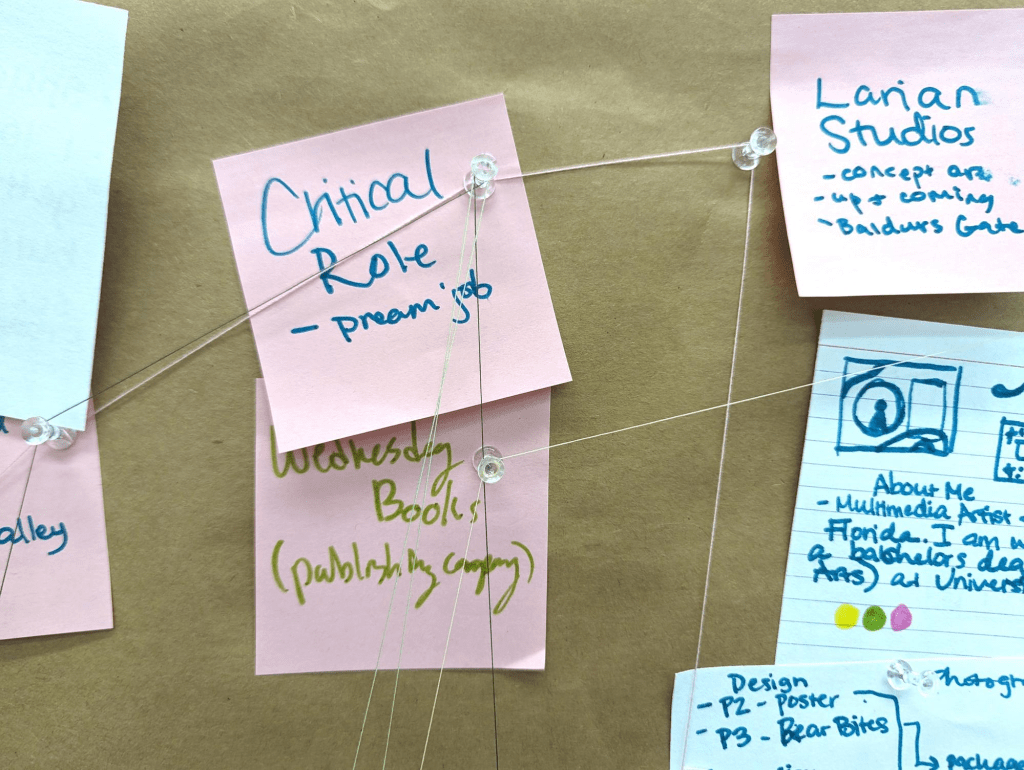 Critical
Role
- Dream job
Wednesday
Books
(publishing company)
Larian
Studios
- concept art
- up + coming
- Baldurs Gate
alley
About Me
- Multimedia Artist -
Florida. I am w
a batchelors deg
Arts) at Universi
Design
- P2 - Poster
- P3 - Bear Bites
Photogr
package